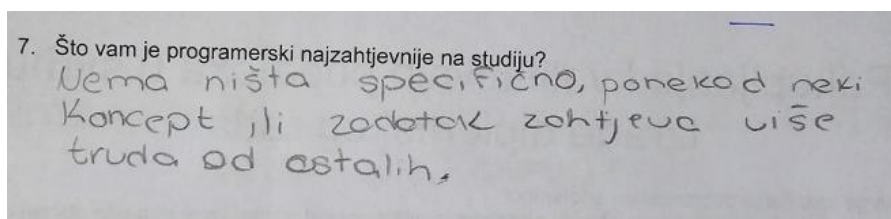 7. Što vam je programerski najzahtjevnije na studiju?
Nema ništa specifično, ponekod neki
koncept ili zadatak zahtjeva više
truda od ostalih.